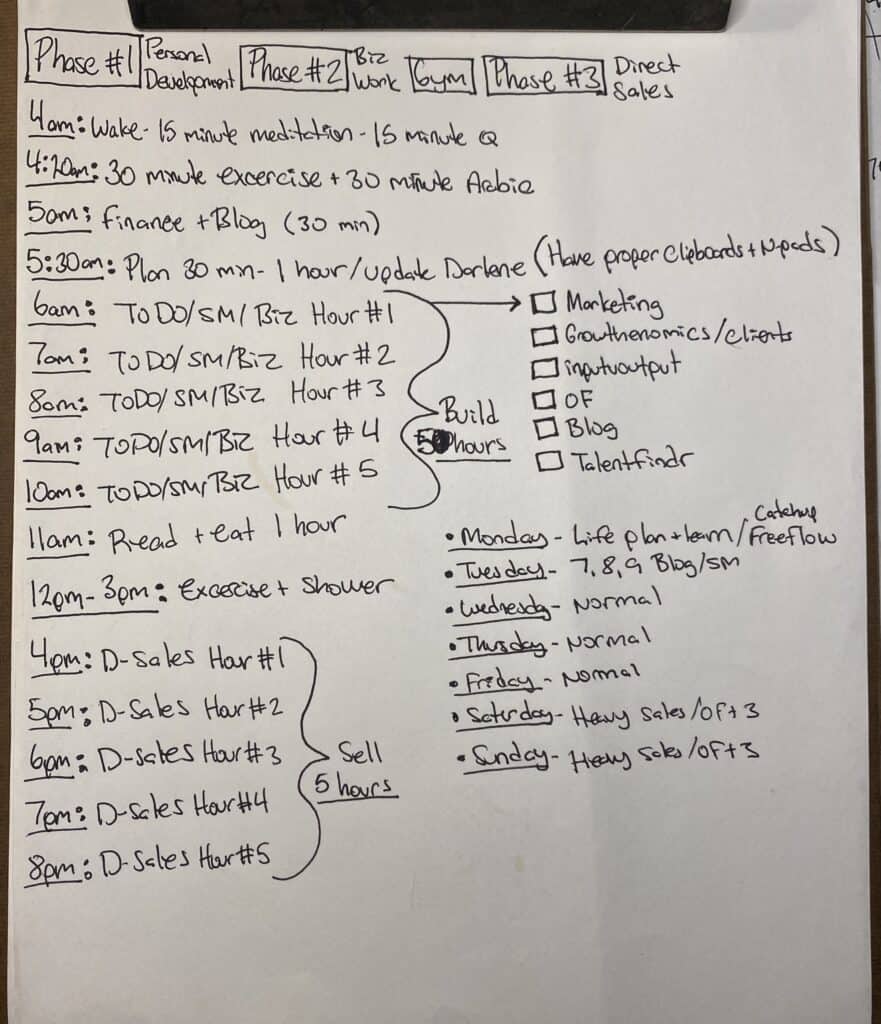 Phase #1 Personal Development Phase #2 Biz Work Gym Phase #3 Direct Sales
4am: Wake - 15 minute meditation - 15 minute Q
4:20am: 30 minute excercise + 30 minute Arabic
5am: Finance + Blog (30 min)
5:30am: Plan 30 min - 1 hour/update Darlene (Have proper Clipboards + N-pads)
6am: TO DO/SM/Biz Hour #1
7am: TO DO/SM/Biz Hour #2
8am: TODO/SM/Biz Hour #3
9am: TODO/SM/Biz Hour #4
10am: TODO/SM/Biz Hour #5
Build
5 hours
Marketing
Growthenomics/clients
inputoutput
OF
Blog
Talentfindr
11am: Read + eat 1 hour
12pm - 3pm: Excercise + Shower
4pm: D-Sales Hour #1
5pm: D-Sales Hour #2
6pm: D-Sales Hour #3
7pm: D-Sales Hour #4
8pm: D-Sales Hour #5
Sell
5 hours
• Monday - Life plan + learn/Catchup Freeflow
• Tuesday - 7, 8, 9 Blog/SM
• Wednesday - Normal
• Thursday - Normal
• Friday - Normal
• Saturday - Heavy Sales/OF+3
• Sunday - Heavy Sales/OF+3